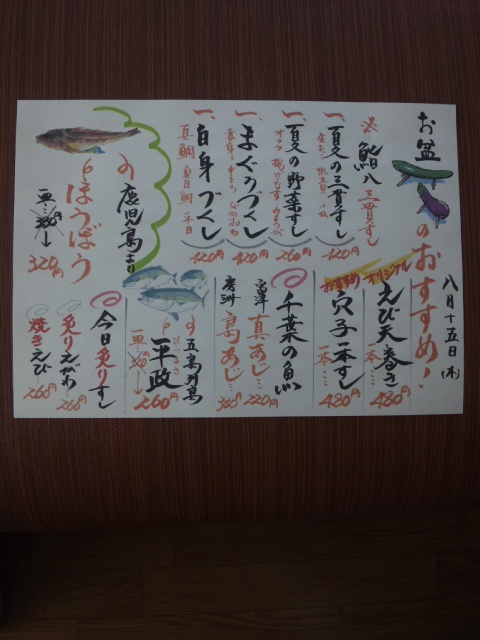 お盆のおすすめ!
八月十五日(木)
鮨八 三貫すし
一、夏の三貫すし
420円
一、夏の野菜すし
260円
一、まぐろづくし
420円
一、白身づくし
真鯛 金目鯛 平目
420円
鹿児島より
ほうぼう
320円
オリジナル
えび天巻き
一本… 480円
おすすめ
穴子一本すし
一本… 480円
千葉の魚
富津 真あじ… 220円
房州 島あじ… 300円
五島列島
平政
260円
今日炙りすし
炙りえがわ… 260円
焼きえび… 260円